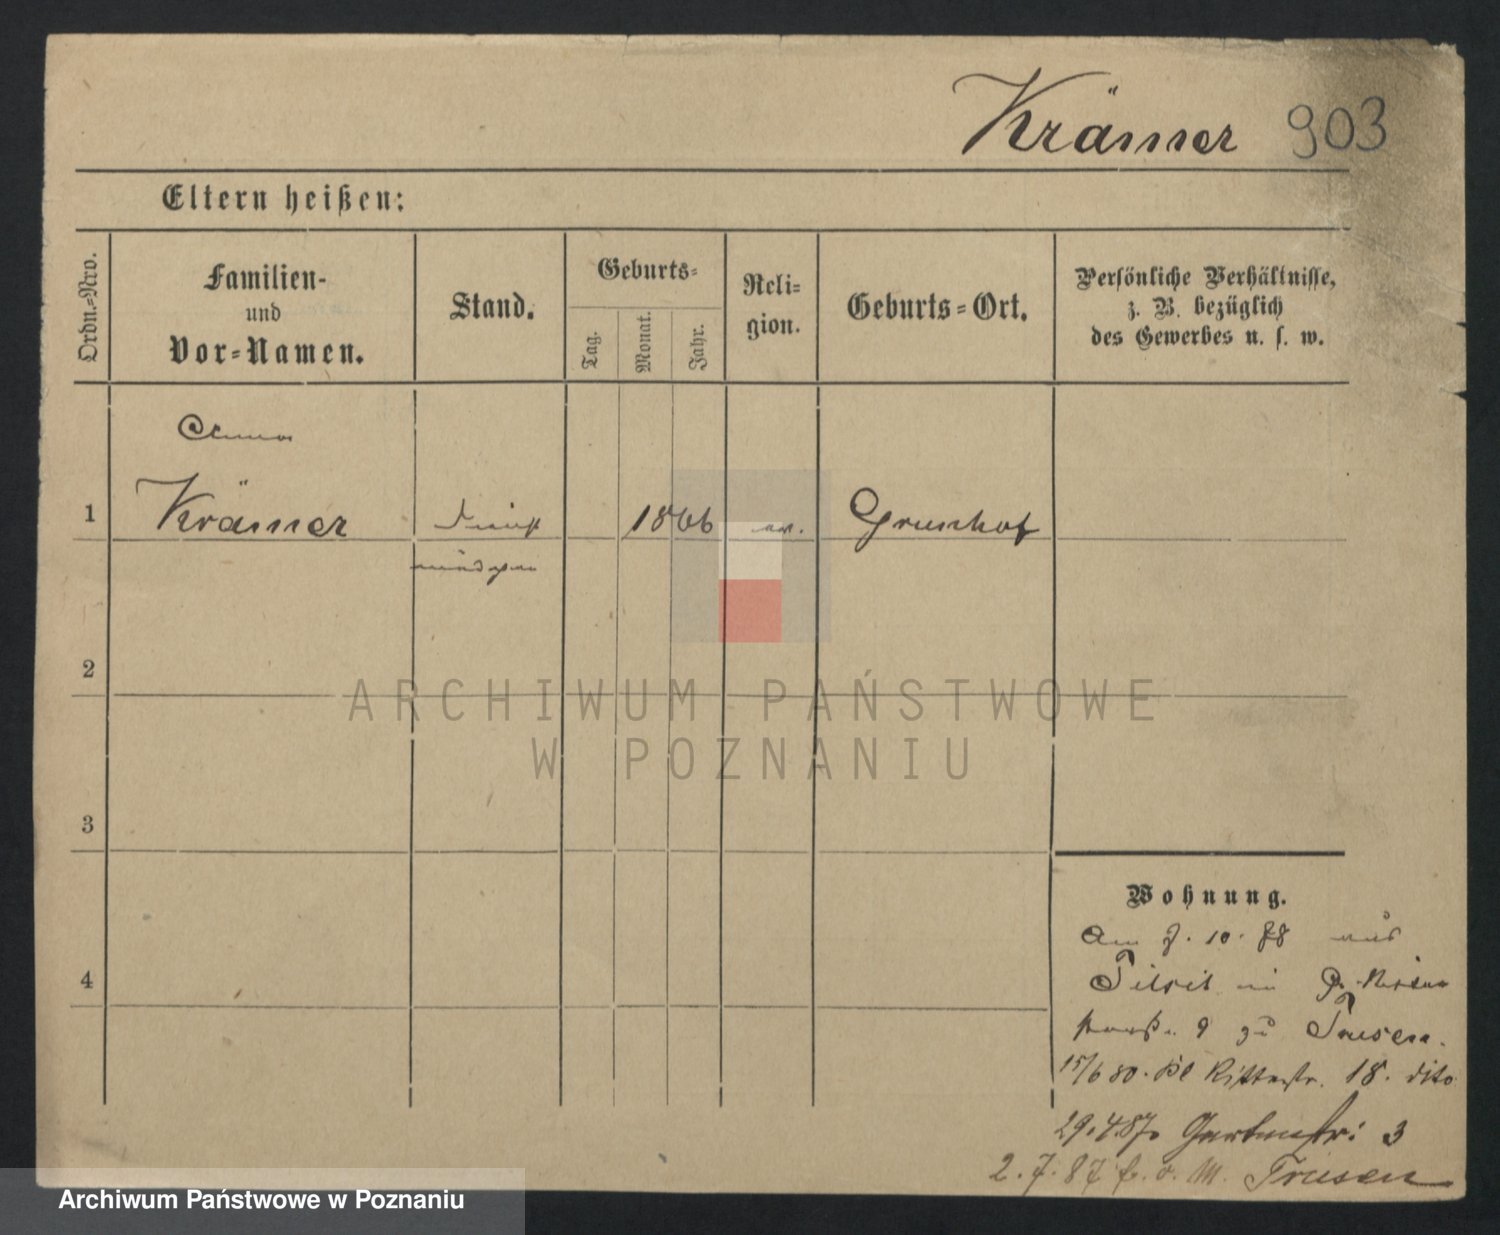 Krämer 903
Eltern heißen:
Ordn.-Nro.
Familien-
und
Vor-Namen.
Stand.
Geburts-
Tag.
Monat.
Jahr.
Reli-
gion.
Geburts-Ort.
Persönliche Verhältnisse,
z. B. bezüglich
des Gewerbes u. s. w.
Anna
1 Krämer Dienst 1866 ev. Grunhof
mädchen
2
3
4
ARCHIWUM PAŃSTWOWE
W POZNANIU
Wohnung.
Am 7. 10. aus
Tilsit in
straße 9 zu Trusen.
15/6 Kl Ritterstr. 18. dito
29.4.87. Gartenstr: 3
2.7.87 b. o. M. Trusen
Archiwum Państwowe w Poznaniu